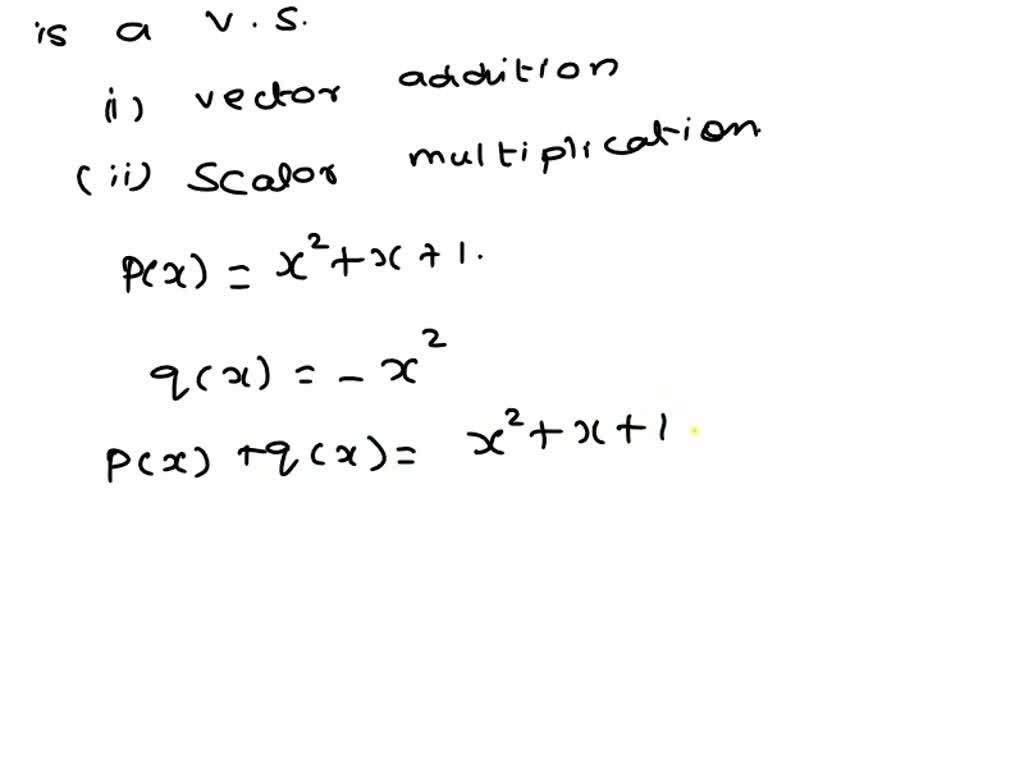 is a v.s.
(i) vector addition
(ii) Scalor multiplication
P(x) = x² + x + 1.
q(x) = - x²
P(x) + q(x) = x² + x + 1